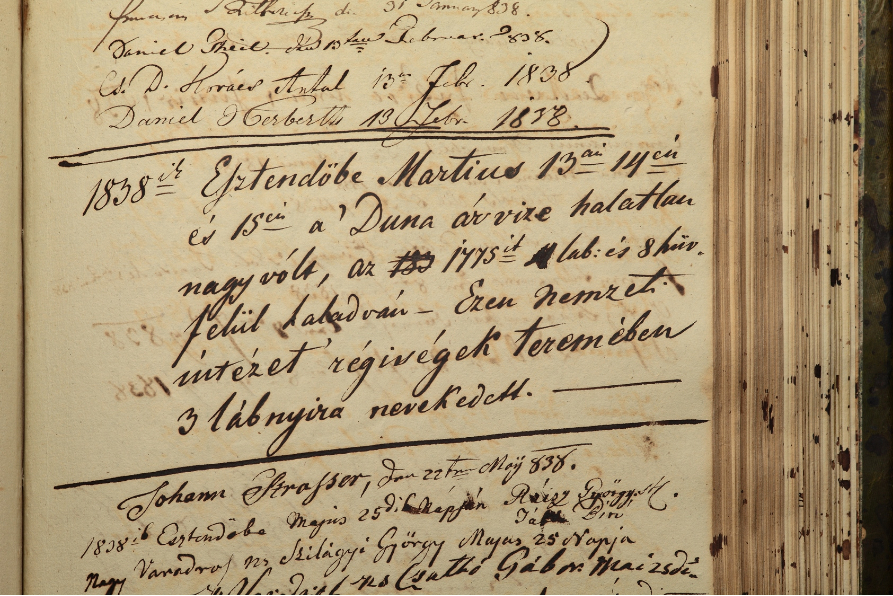 31 January 838.
Daniel 13ten Februar. 838.
Cs. D. Kovács Antal 13a Febr. 1838
Daniel Herberth 13 Febr. 1838.
1838it Esztendőbe Martius 13ai 14én
és 15én a' Duna árvize halatlan
nagy vólt, az 1775it láb: és 8 hüv.
felül haladván – Ezen nemzeti
intézet régiségek teremében
3 lábnyira nevekedett.
Johann Strasser, den 22ten Maÿ 838.
1838ik Esztendőbe Majus 25dik Napján
Nagy Váradról Szilágyi György Majus 25 Napja
Csatkó Gábor Mai 25